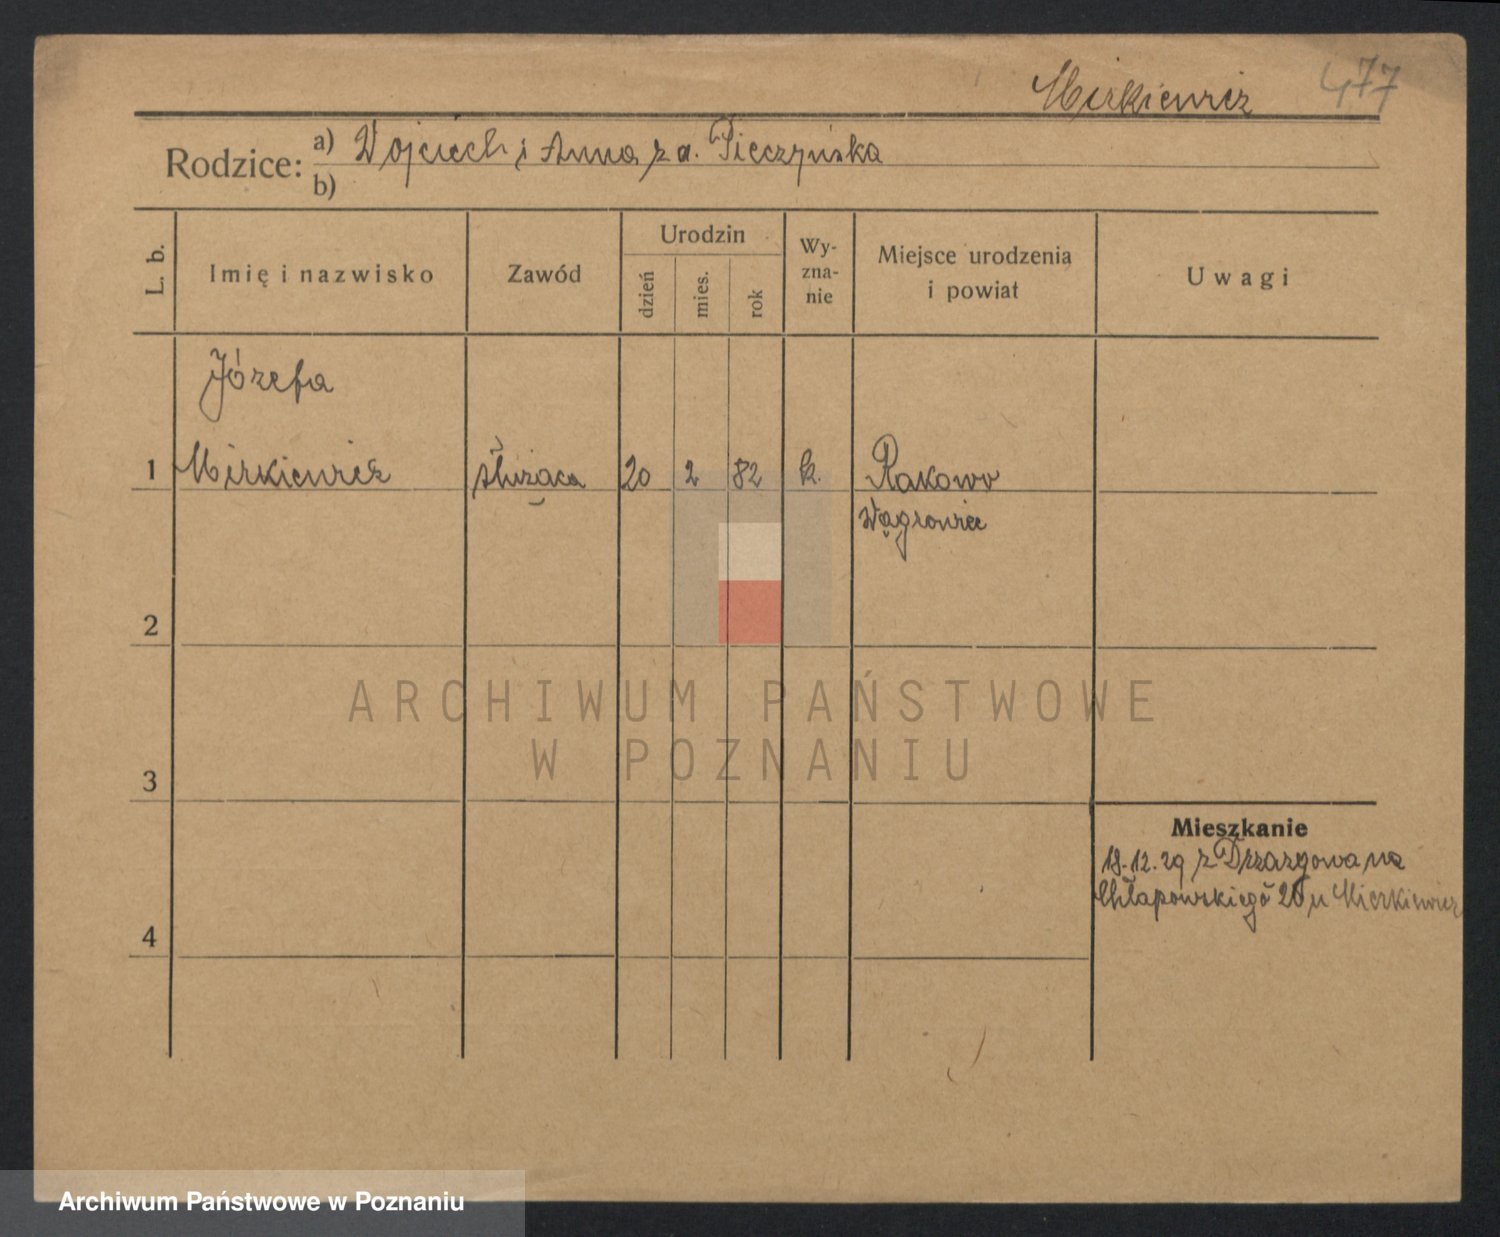 Mirkiewicz 477
Rodzice: a) Wojciech i Anna z d. Pieczyńska
b)
L. b. Imię i nazwisko Zawód Urodzin dzień mies. rok Wyznanie Miejsce urodzenia i powiat Uwagi
Józefa
1 Mirkiewicz służąca 20 2 82 k. Rakowo
Wągrowiec
2
ARCHIWUM PAŃSTWOWE
W POZNANIU
3
Mieszkanie
18.12.29 z Drzazgowa na
Chłapowskiego 20 u Mirkiewicz
4
Archiwum Państwowe w Poznaniu